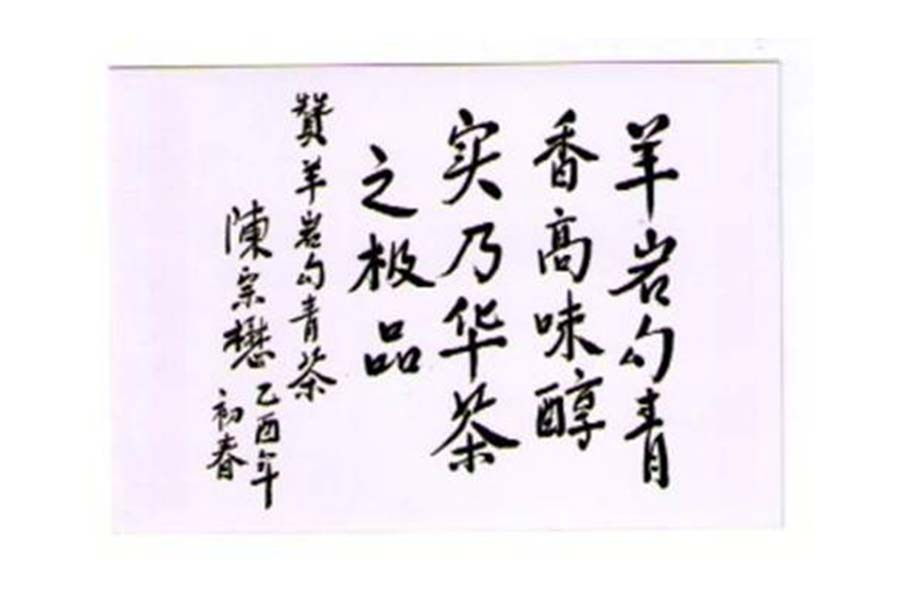 羊岩勾青
香高味醇
实乃华茶
之极品
贊羊岩勾青茶
陳宗懋
乙酉年
初春